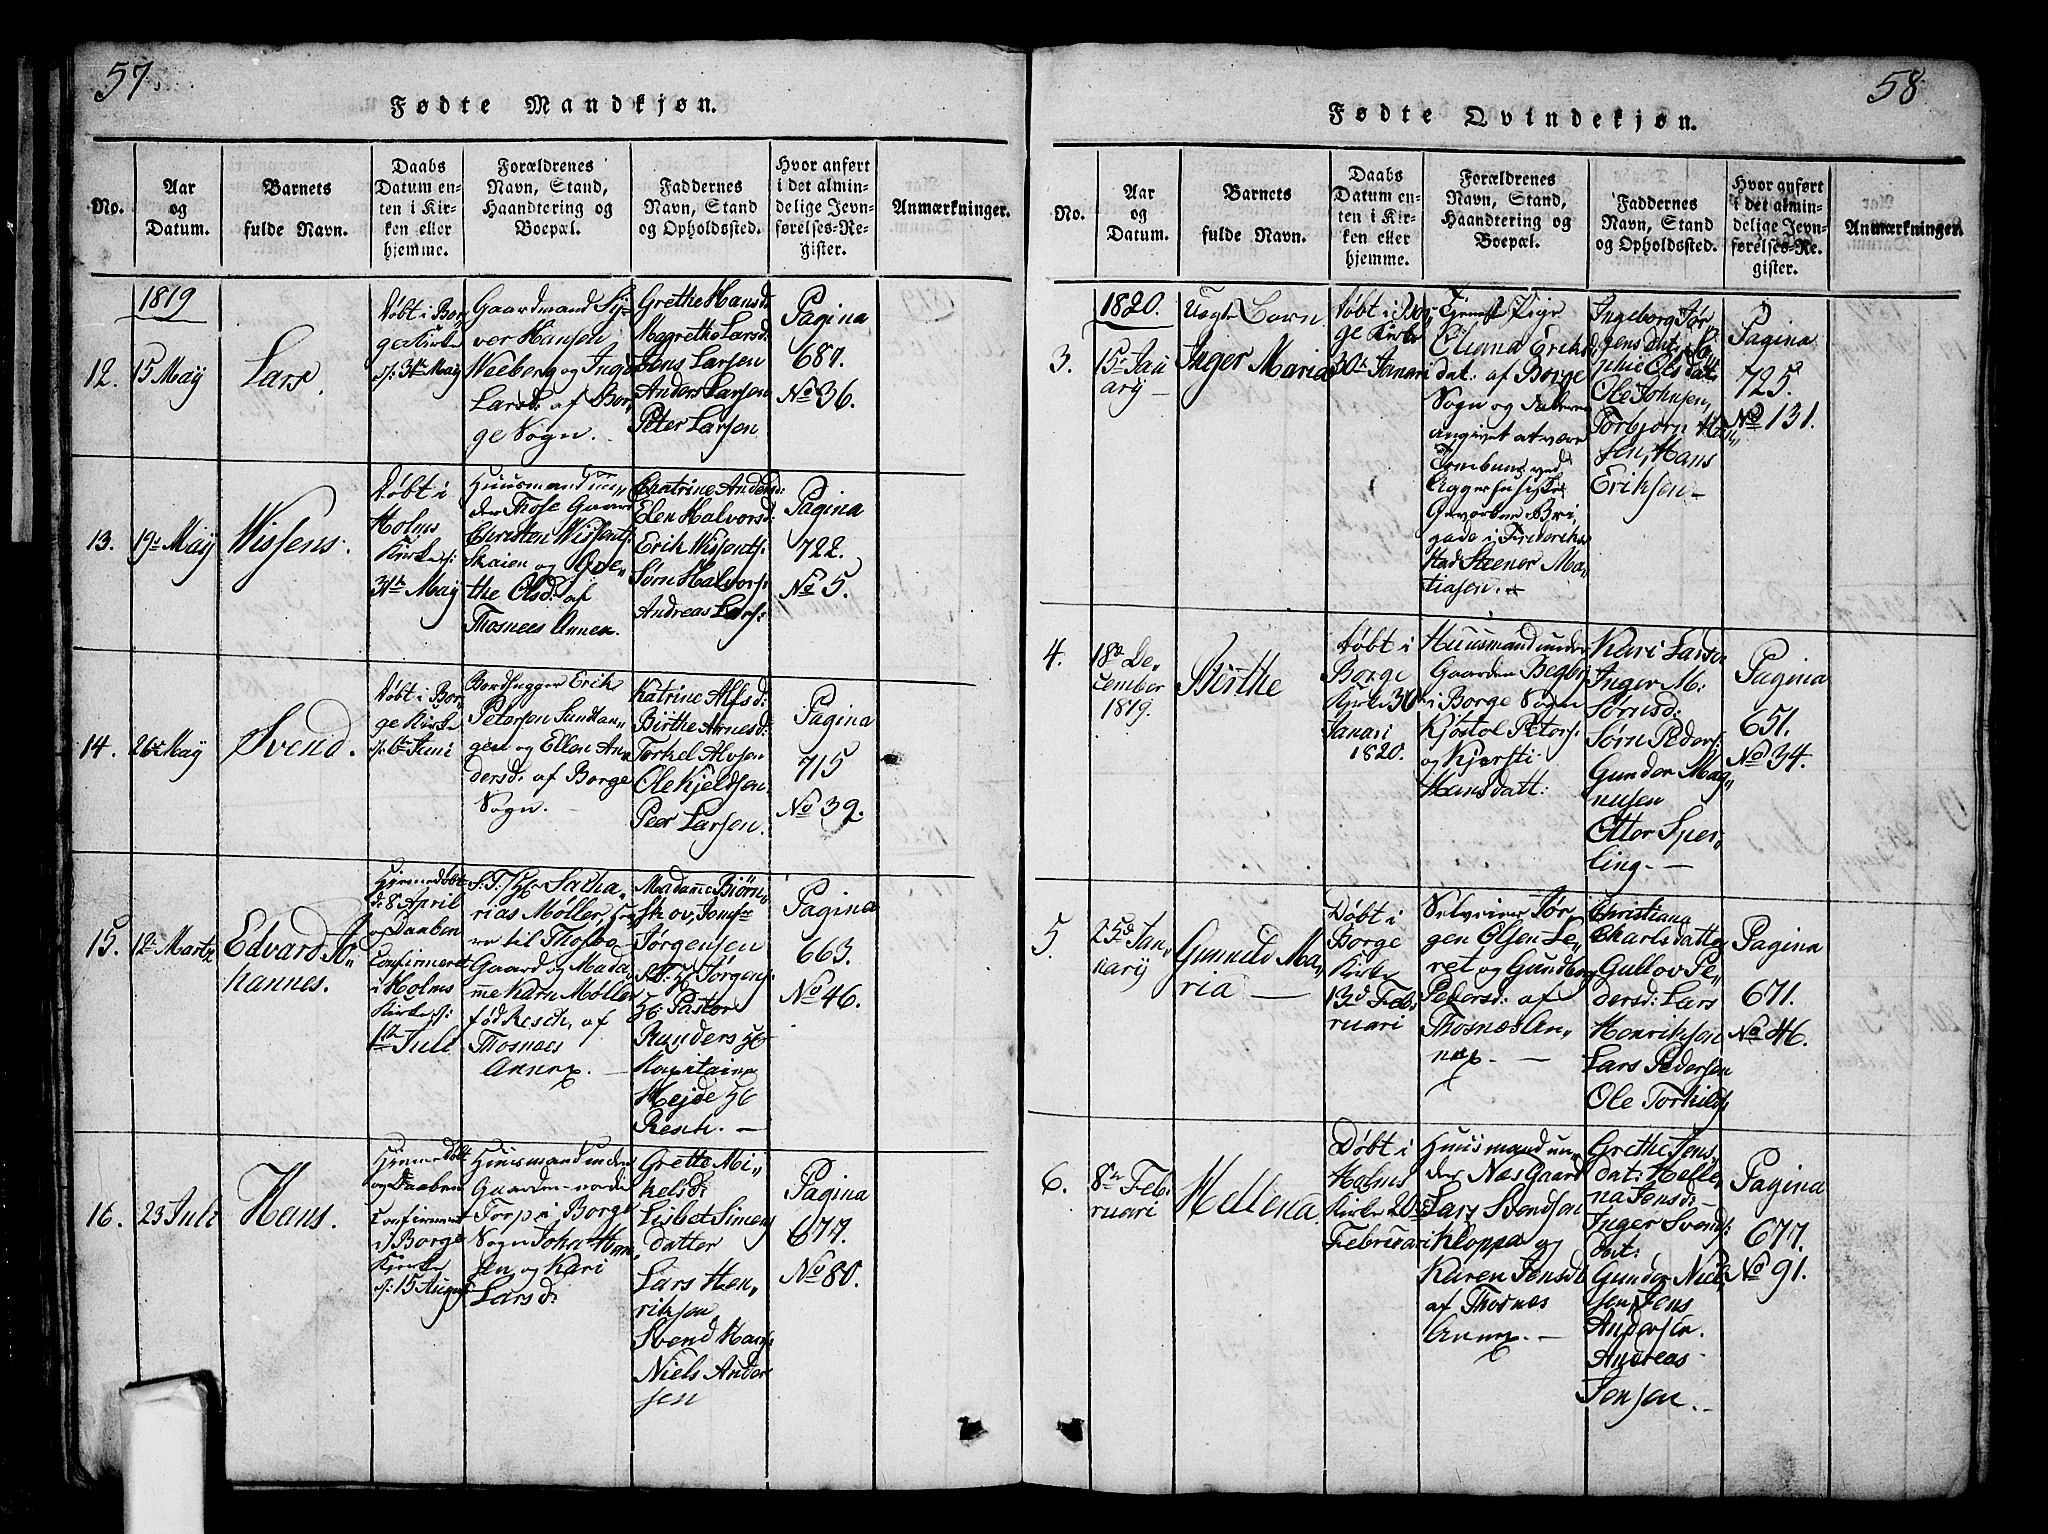 57
Fødte Mandkjøn.
No.
Aar
og
Datum.
Barnets
fulde Navn.
Daabs
Datum en-
ten i Kir-
ken eller
hjemme.
Forældrenes
Navn, Stand,
Haandtering og
Boepæl.
Faddernes
Navn, Stand
og Opholdssted.
Hvor anført
i det almin-
delige Jevn-
førelses-Re-
gister.
Anmærkninger.
1819
12.
15 May
Lars.
Døbt i Bor,
ge Kirke
d: 31te May
Gaardmand Sy,
ver Hansen
Weeberg og Inge
Larsd: af Bor,
ge Sogn.
Grethe Hansd:
Magrethe Larsd:
Jens Larsen
Anders Larsen
Peter Larsen
Pagina
687.
No 36.
13.
19de May
Wissens.
Døbt i
Holms
Kirke d:
31te May
Huusmand un,
der Those Gaard
Christen Wissents:
Skaien og
the Olsd: af
Thosnees Annex.
Chatrine Andersd:
Elen Halvorsd:
Erik Wissents:
Sørn Halvors:
Andreas Lars:
Pagina
722.
No 5.
14.
26de May
Svend.
Døbt i Bor,
ge Kirke
d: 6te Juni
Bordhugger Erik
Petersen Sundtan,
gen og Ellen An,
dersd: af Borge
Sogn.
Katrine Alfsd:
Birthe Arnesd:
Torkel Alvsen
Ole Kjeldsen
Peer Larsen.
Pagina
715
No 39.
15.
12te Martz
Edvard Jo,
hannes.
Hjemedøbt
d: 8 April
og Daaben
Confirmeret
i Holms
Kirke d:
1te Juli
S: T: Hr Sacha,
rias Møller,
re til Thosboe
Gaard og Mada,
me Karn Møller
fød Resch, af
Thosnæs
Annex.
Madame Biørn,
skov, Jomfru
Jørgensen
S: T: H Jørgens:
Hr Pastor
Runders Hr
Kapitaine
Hejde Hr
Resch.
Pagina
663.
No 46.
16.
23 Juli
Hans.
Hjemedøbt
og Daaben
Confirmeret
i Borge
Kirke
d: 15 August
Huusmand under
Gaarden nordre
Torp i Borge
Sogn Johan Han,
sen og Kari
Larsd:
Grette Mi,
kelsd:
Lisbet Simens
datter
Lars Hen,
riksen
Svend Hans:
Niels Ander
sen
Pagina
677.
No 80.
58
Fødte Qvindekjøn.
No.
Aar
og
Datum.
Barnets
fulde Navn.
Daabs
Datum en-
ten i Kir-
ken eller
hjemme.
Forældrenes
Navn, Stand,
Haandtering og
Boepæl.
Faddernes
Navn, Stand
og Opholdssted.
Hvor anført
i det almin-
delige Jevn-
førelses-Re-
gister.
Anmærkninger.
1820.
3.
15de Janu
ary
Uægte Barn
Inger Maria
Døbt i Bor,
ge Kirke
30te Janari
Tjeneste Pige
Eliana Eriks
dat: af Borge
Sogn og Faderen
angivet at være
Tambur ved
Aggerhusiske
Gevorbne Bri,
gade i Frederiks
stad Steener Ma,
tiasen.
Ingeborg Jør,
gens dat: So,
phie Olsdat:
Ole Johnsen,
Torbjørn
sen, Hans
Eriksen
Pagina
725.
No 131.
4.
18de De,
cember
1819.
Birthe
Døbt i
Borge
Kirke 30te
Janari
1820.
Huusmand under
Gaarden Begby
i Borge Sogn
Kjøstol Peters:
og Kjersti
Hansdatt:
Kari Larsd:
Inger M:
Sørnsd:
Sørn Peders:
Gunder Mag,
nusen
Otter Sper,
ling.
Pagina
651.
No 34.
5.
25de Jan,
nary
Gunnild Ma,
ria
Døbt i
Borge
Kirke
13de Feb:
ruari
Selveier Jør,
gen Olsen Le,
ret og Gundbor
Pedersd: af
Thosnæs An,
nex.
Christiana
Charlsdatter
Gullov Pe,
dersd: Lars
Henriksen
Lars Pedersen
Ole Torkilds:
Pagina
671.
No 46.
6.
8de Feb:
ruari
Hellena.
Døbt i
Holms
Kirke 20de
Februari
Huusmand un,
der Næs Gaard
Lars Svendsen
Kloppa og
Karen Jensd:
af Thosnæs
Annex.
Grethe Jens,
dat: Helle,
na Jensd:
Inger Svends:
dat:
Gunder Niel,
sen, Jens
Andersen.
Andreas
Jensen.
Pagina
677.
No 91.